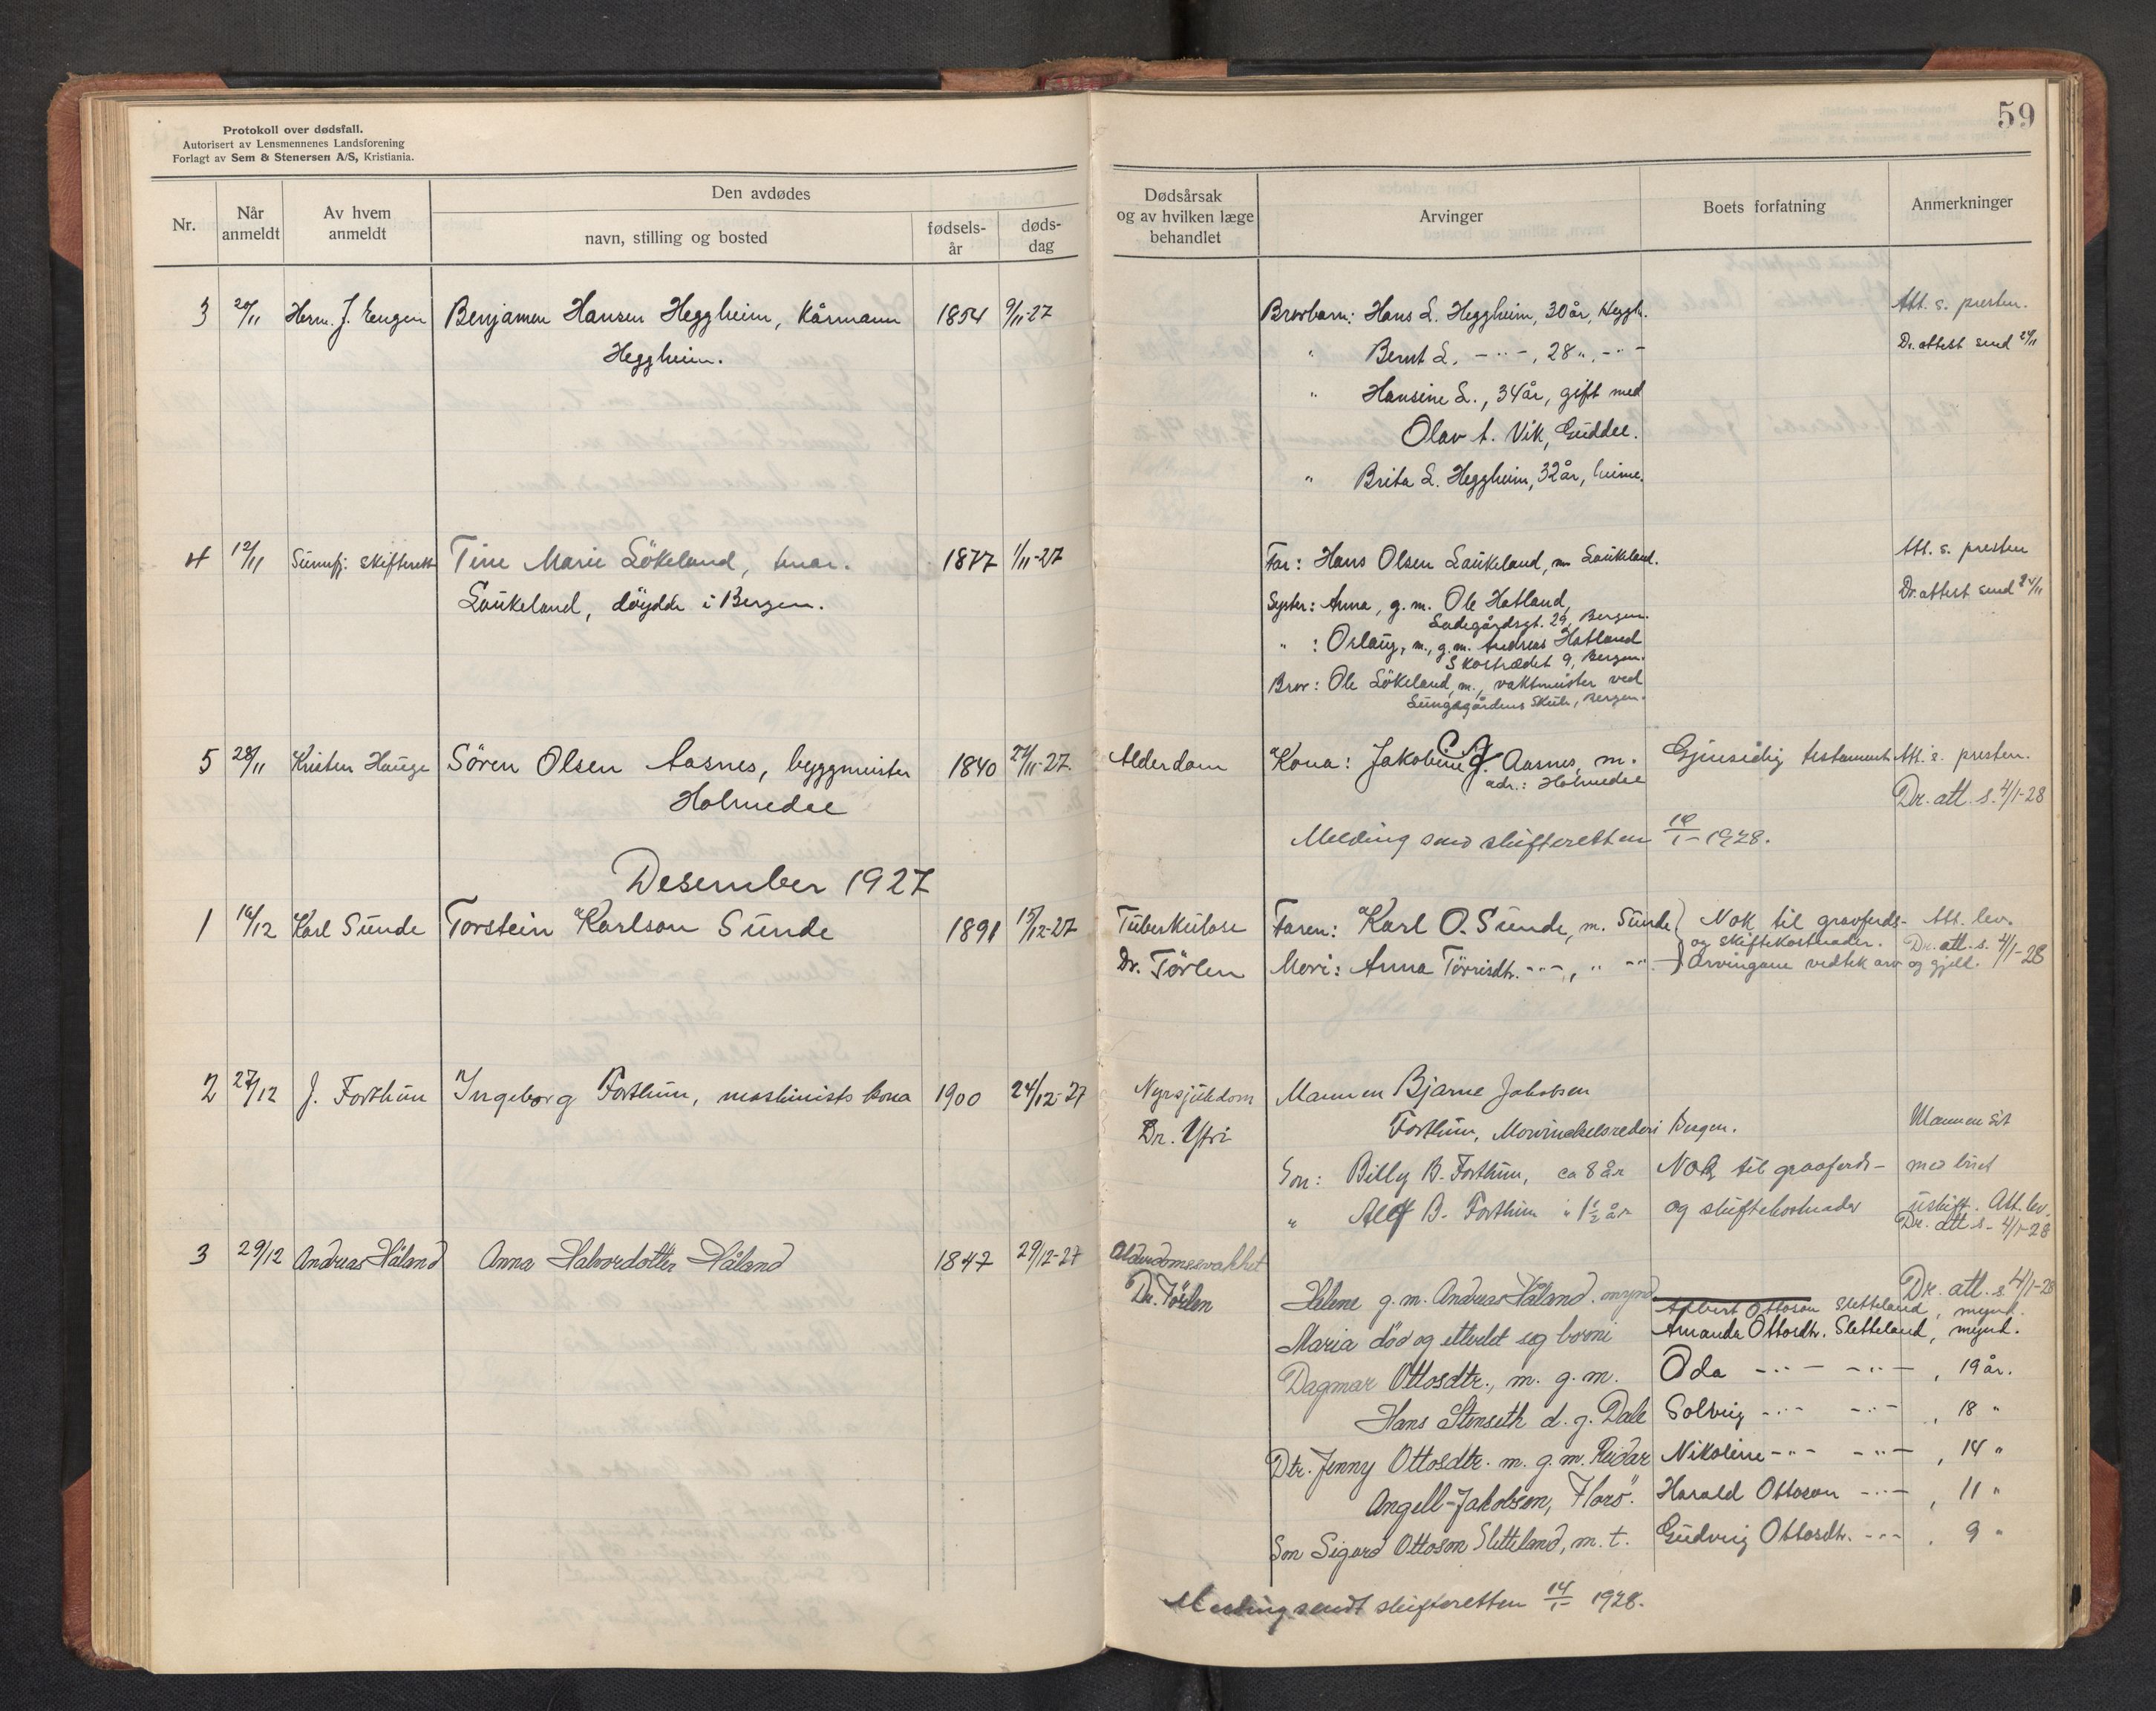 Protokoll over dødsfall.
Autorisert av Lensmennenes Landsforening
Forlagt av Sem & Stenersen A/S, Kristiania.
59
Nr.
Når anmeldt
Av hvem anmeldt
Den avdødes
navn, stilling og bosted
fødsels-år
døds-dag
Dødsårsak og av hvilken læge behandlet
Arvinger
Boets forfatning
Anmerkninger
3 20/11 Herm. J. Eengen Benjamen Hansen Heggheim, kårmann 1854 9/11-27 Brorbarn: Hans L. Heggheim, 30 år, Heggh. Att. s. presten.
Heggheim. " Bernt L. -"-, 28 ", -"- Dr. attest send 24/11
" Hansine L., 34 år, gift med
Olav A. Vik, Guddal.
" Brita L. Heggheim, 32 år, heime.
4 12/11 Sunnfj. skifterett Tine Marie Lökeland, 1877 1/11-27 Far: Hans Olsen Laukeland, Laukeland. Att. s. presten
Laukeland, döydde i Bergen. Syster: Anna, g. m. Ole Hatland, Dr. attest send 24/11
Ladegårdsgt. 29, Bergen.
" : Orlaug, m., g. m. Andreas Hatland
Skostrædet 9, Bergen.
Bror: Ole Lökeland, m., vaktmeister ved
Lungegårdens Skule, Bergen.
5 28/11 Kristen Hauge Sören Olsen Aasnes, byggmeister 1840 24/11-27. Alderdom Kona: Jakobine J. Aasnes, m. Gjensidig testament. Att. s. presten.
Holmedal adr.: Holmedal Dr. att. s. 4/1-28
Melding send skifteretten 10/1-1928.
Desember 1927
1 16/12 Karl Sunde Torstein Karlson Sunde 1891 15/12-27 Tuberkulose Faren: Karl O. Sunde, m. Sunde Nok til gravferds- Att. lev.
og skiftekostnader. Dr. att. s. 4/1-28
Dr. Törlen Mori: Anna Törrisdtr. -"-, " -"- Arvingane vedtek arv og gjeld.
2 27/12 J. Forthun Ingeborg Forthun, maskinists kona 1900 24/12-27 Nyrsjukdom Mannen Bjarne Jakobsen
Dr. Ytri Forthun, Mowinckelsrederi Bergen. Mannen sit
Son: Billy B. Forthun, ca 8 år Nok til gravferds- med buet
" Alf B. Forthun " 1½ år og skiftekostnader uskift. Att. lev.
Dr. att s. 4/1-28
3 29/12 Andreas Håland Anna Halvordotter Håland 1847 29/12-27 Alderdomssvakhet
Dr. Törlen Helene g. m. Andreas Håland. Dr. att. s. 4/1-28
Albert Ottoson Sletteland, mynd.
Maria död og etterlet seg borni Amanda Ottosdtr. Sletteland, mynd.
Dagmar Ottosdtr., m. g. m. Oda -"- -"-, 19 år.
Hans Stenseth d. g. Dale Solveig -"- -"-, 18 "
Dtr. Jenny Ottosdtr. m. g. m. Reidar Nikoline -"- -"-, 14 "
Angell-Jakobsen, Florö. Harald Ottoson -"-, 11 "
Son Sigurd Ottoson Sletteland, m. t. Gudveig Ottosdtr. -"-, 9 "
Melding sendt skifteretten 14/1- 1928.